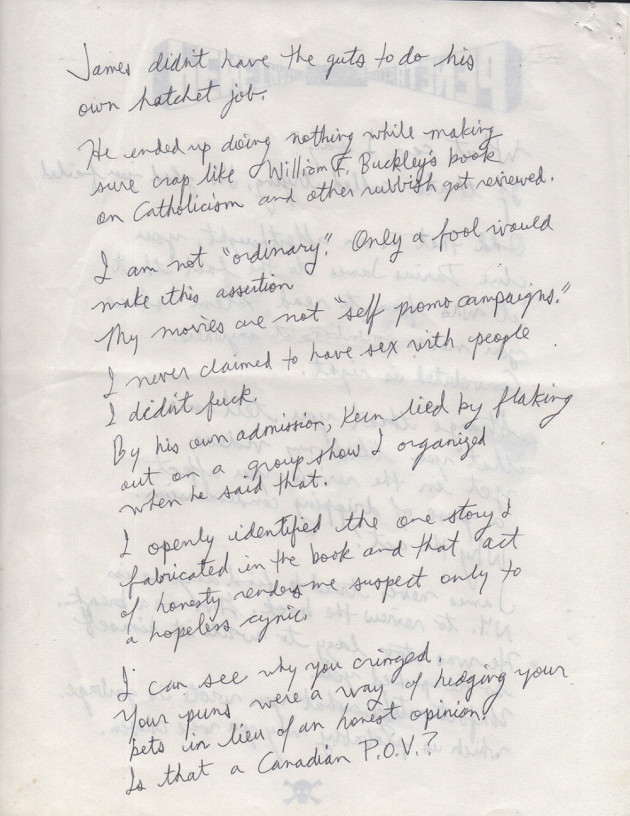 James didn't have the guts to do his
own hatchet job.
He ended up doing nothing while making
sure crap like William F. Buckley's book
on Catholicism and other rubbish got reviewed.
I am not "ordinary." Only a fool would
make this assertion
My movies are not "self promo campaigns."
I never claimed to have sex with people
I didn't fuck.
By his own admission, Kern lied by flaking
out on a group show I organized
when he said that.
I openly identified the one story I
fabricated in the book and that act
of honesty renders me suspect only to
a hopeless cynic.
I can see why you cringed.
Your puns were a way of hedging your
bets in lieu of an honest opinion.
Is that a Canadian P.O.V.?